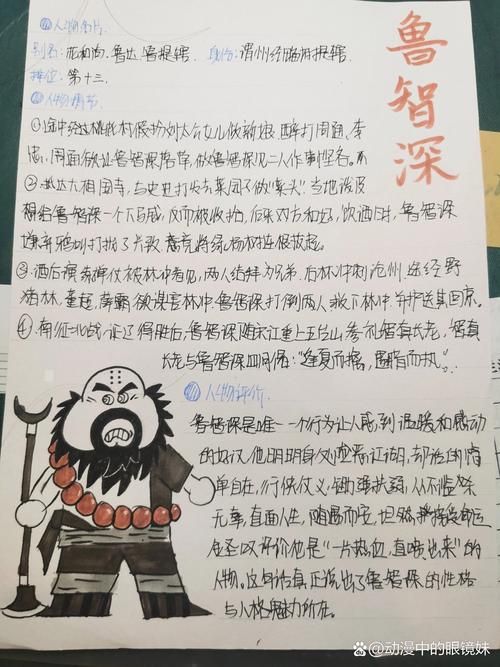 人物名片
鲁智深
别名：花和尚、鲁达、鲁提辖 身份：渭州经略府提辖
排位：第十三
人物情节
①途中经过桃花村假扮刘太公女儿做新娘，醉打周通，李
忠，周通欲让鲁智深落草，做鲁智深见二人作事坚吝。不
②抵达大相国寺，与史进打发去菜园子做“菜头”当地泼皮
想给鲁智深一个下马威，反而被收拾，后来双方和好，饮酒时，鲁智深
嫌弃鸦叫打扰了兴致 竟将绿杨树连根拔起。
③酒后演练禅仗被林冲看见，两人结拜为兄弟。后林冲刺沧州，途经野
猪林，董超，薛霸欲谋害林冲。鲁智深打倒两人救下林冲 并护送其回原。
④南征北战，征辽得胜后，鲁智深随宋江重上五台山，参礼智真长老，智真
长老与鲁智深四句偈：“逢夏而擒，遇腊而执”。
人物评价
鲁智深是唯一一个行为让人感到温暖和感动
的好汉，他明明身处
单自在，行侠仗义，锄强扶弱，从不
无辜，直面人生，随遇而安，坦然
金圣叹评价他是“一片热血，直喷出来”的
人物。这句话真正说出了鲁智深的性格
与人格魅力所在。
@动漫中的眼镜妹